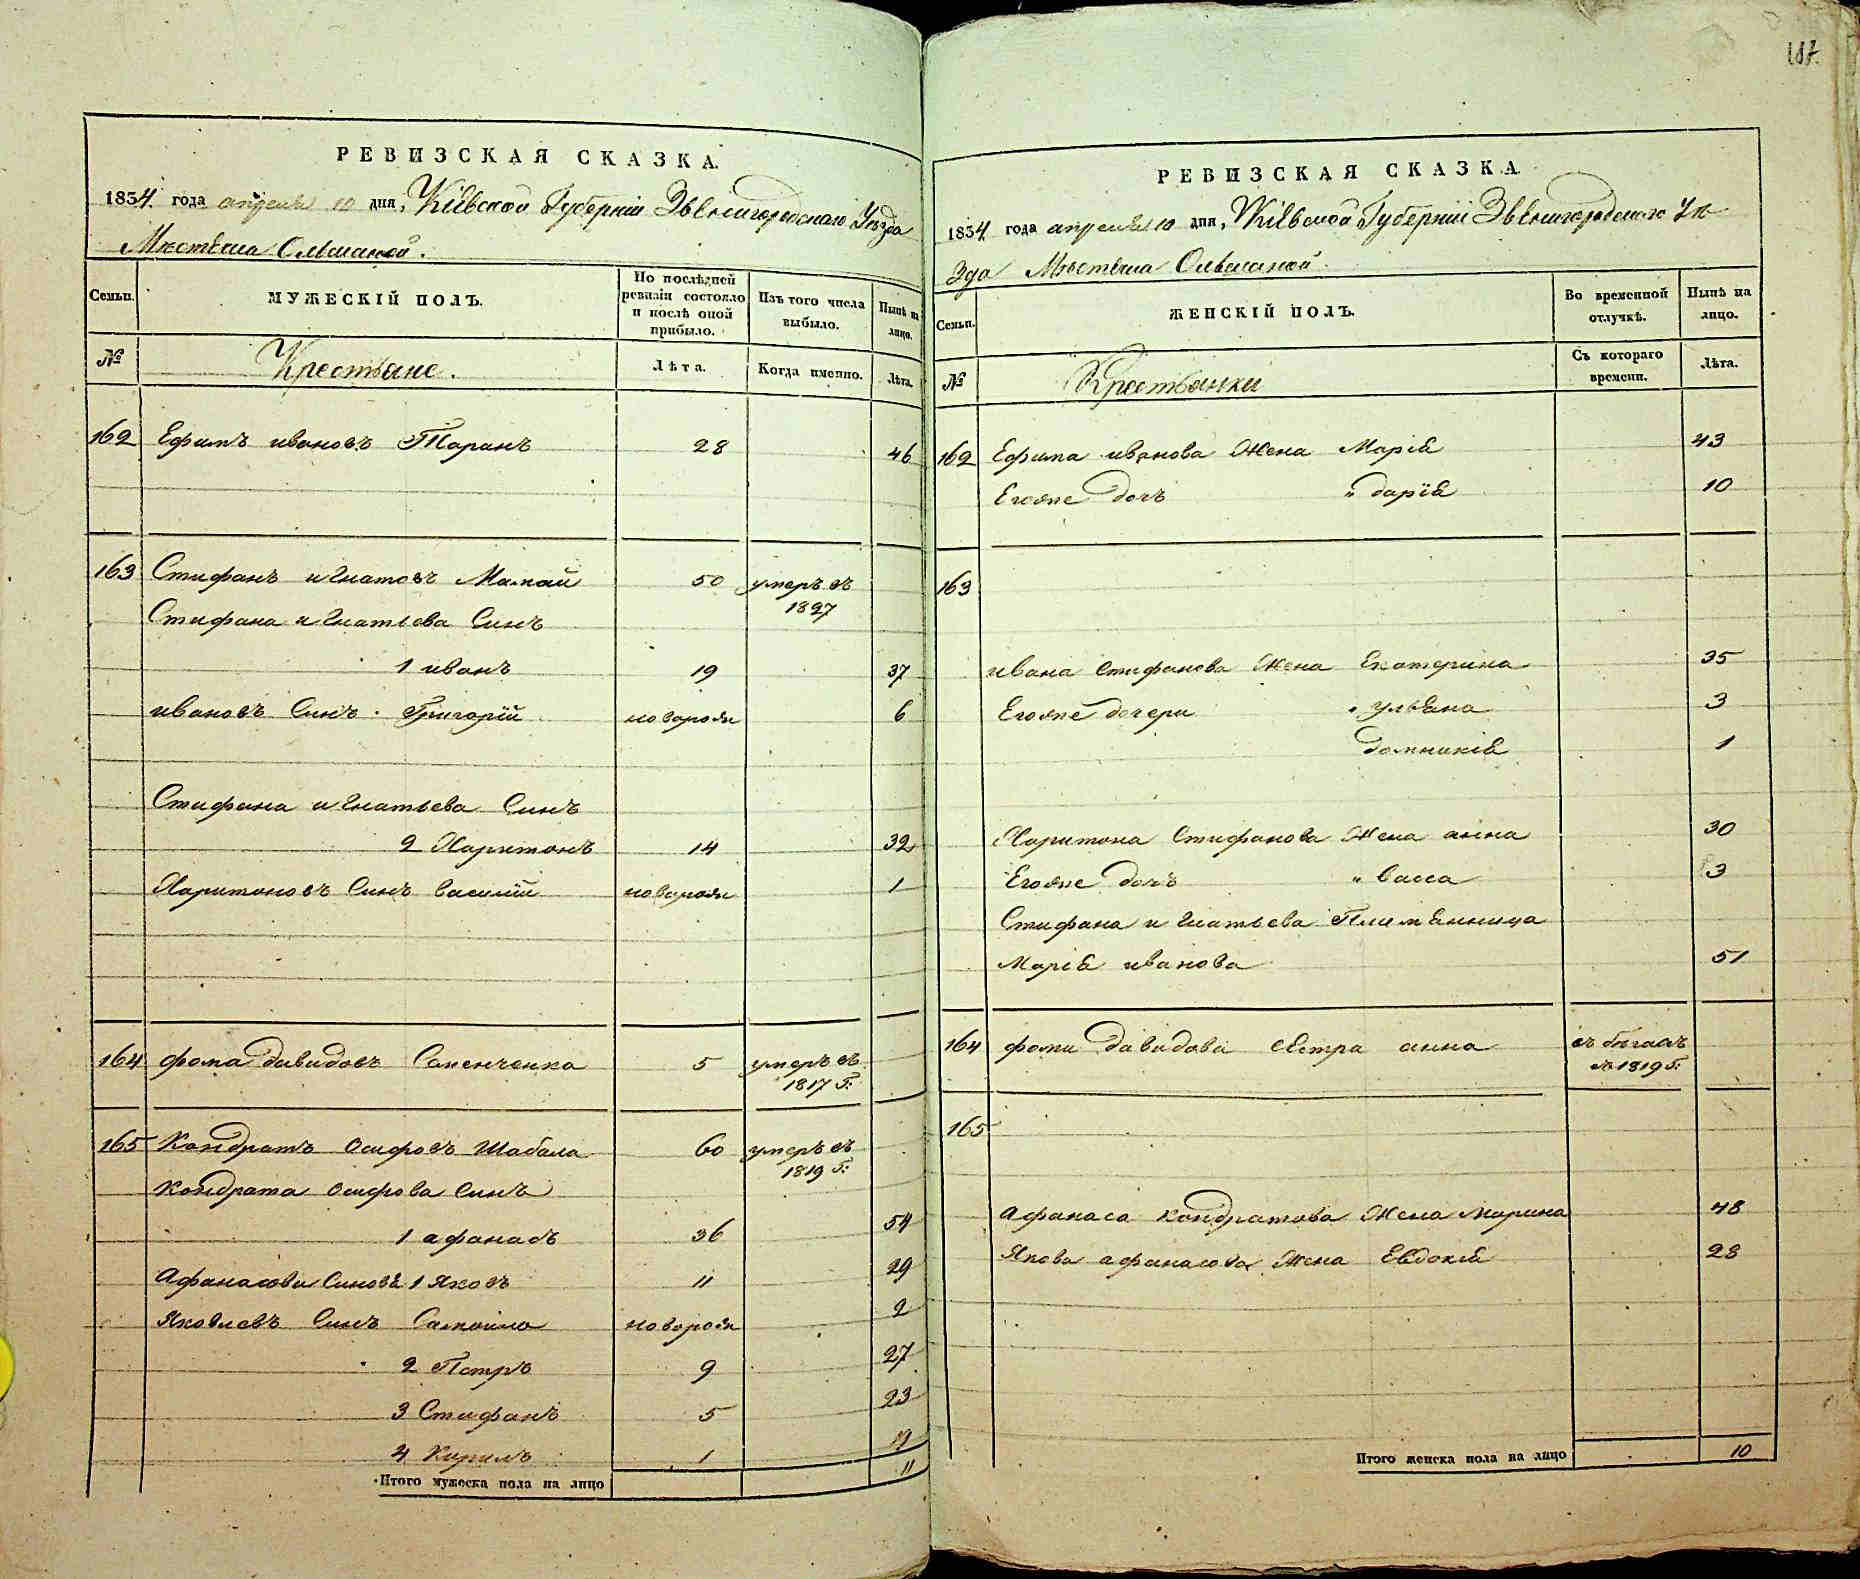 187.
РЕВИЗСКАЯ СКАЗКА.
1834 года апреля 10 дня, Кіевской Губерніи Звенигородскаго Уезда
Местечка Ольшаной.
Семьи.
МУЖЕСКІЙ ПОЛЪ.
По послѣдней ревизіи состояло и послѣ оной прибыло.
Изъ того числа выбыло.
Нынѣ на лицо.
№
Крестьяне.
Лѣта.
Когда именно.
Лѣта.
162 Ефимъ ивановъ Таранъ 28 46
163 Стифанъ игнатовъ Мамай 50 умеръ въ 1827
Стифана игнатьева Синъ
1 иванъ 19 37
ивановъ Синъ Григорій новорож 6
Стифана игнатьева Синъ
2 Харитонъ 14 32
Харитоновъ Синъ василій новорож 1
164 фома давидовъ Саменченко 5 умеръ въ 1817 Г:
165 Кондратъ осифовъ Шабала 60 умеръ въ 1819 Г:
Кондрата осифова синъ
1 афанасъ 36 54
Афанасова Синовѣ 1 Яковъ 11 29
Яковлевъ Синъ Самойло новорож 2
2 Петръ 9 27
3 Стифанъ 5 23
4 Кирилъ 1 19
Итого мужеска пола на лицо 11
РЕВИЗСКАЯ СКАЗКА
1834 года апреля 10 дня, Кіевской Губерніи Звенигородскаго Уе
зда Местечка Ольшаной.
Семьи.
ЖЕНСКІЙ ПОЛЪ.
Во временной отлучкѣ.
Нынѣ на лицо.
№
Крестьянки
Съ котораго времени.
Лѣта.
162 Ефима иванова Жена Марія 43
Егояже дочъ " дарія 10
163
ивана Стифанова Жена Екатерина 35
Егояже дочери " ульяна 3
домникія 1
Харитона Стифанова Жена анна 30
Егояже дочъ " васса 3
Стифана игнатьева Племянница
Марія иванова 51
164 фоми давидова сестра анна въ бегахъ съ 1819 Г:
165
Афанаса кондратова Жена Марина 48
Якова афанасова Жена Евдокія 28
Итого женска пола на лицо 10